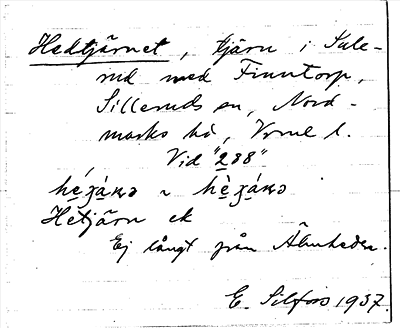 Hedtjärnet, tjärn i Sule-
rud med Finntorp,
Silleruds sn, Nord-
marks hd, Vrml l.
Vid "288"
Hetjärn ek
Ej långt från Älmheden.
E. Silfors 1937.